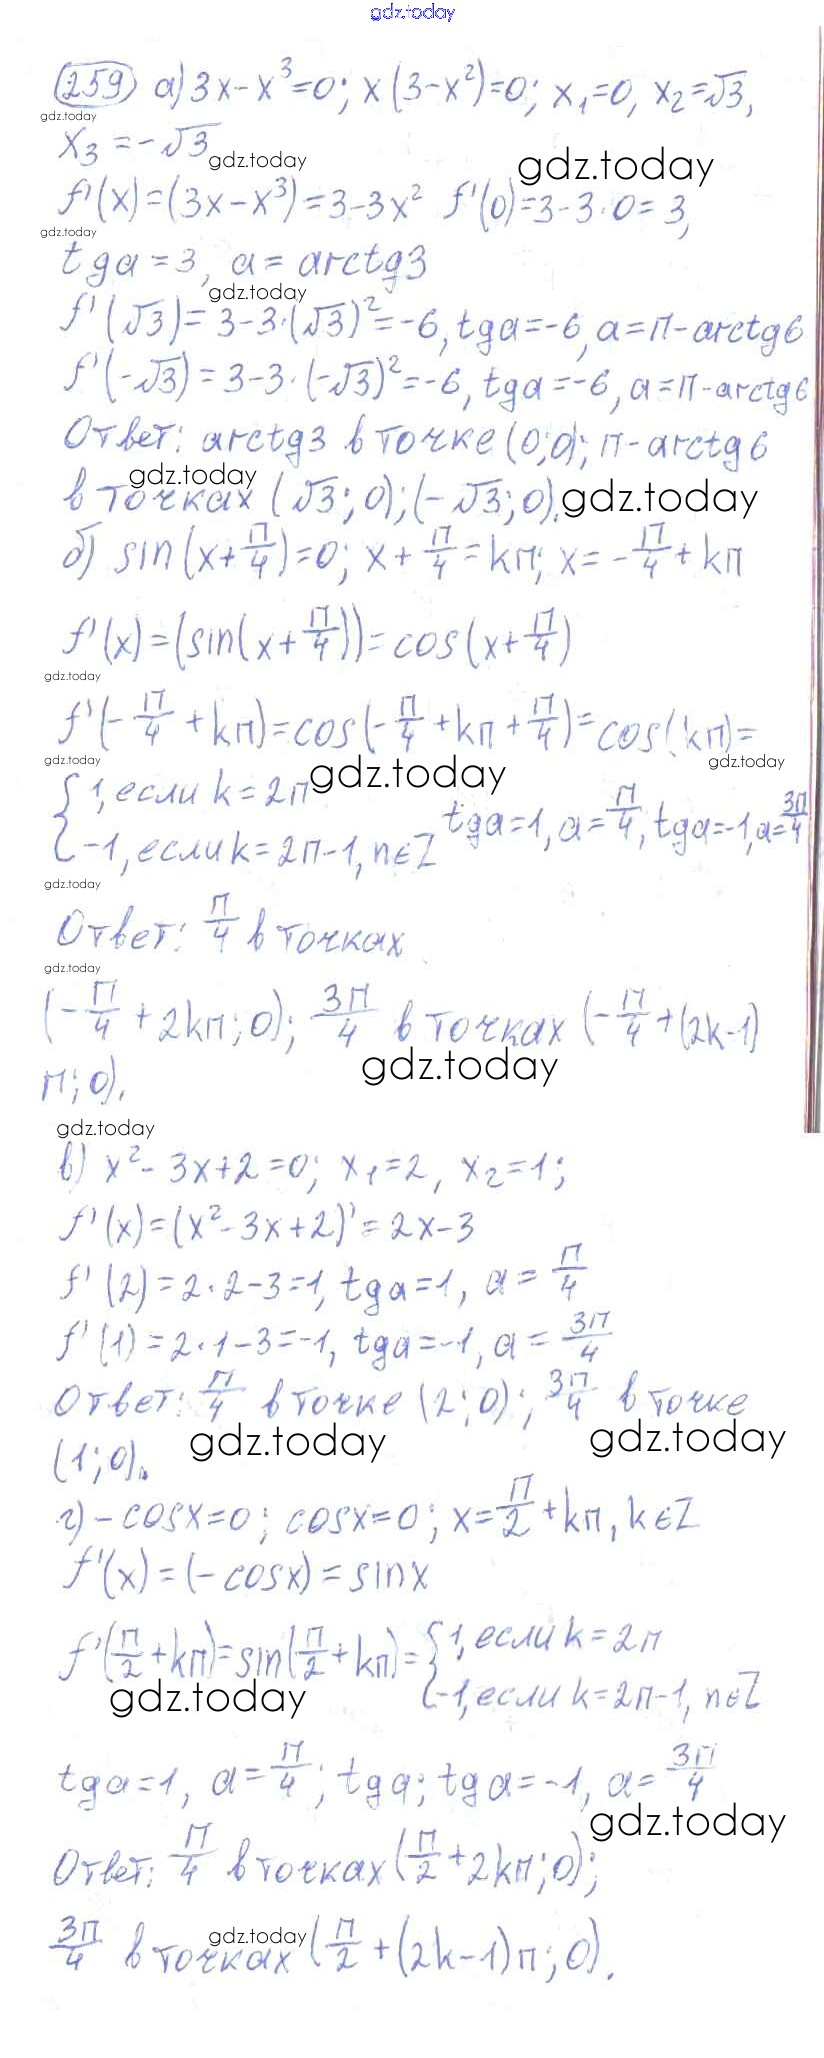 gdz.today
259 а) 3x-x³=0; x(3-x²)=0; x₁=0, x₂=√3,
gdz.today
x₃=-√3
gdz.today gdz.today
f'(x)=(3x-x³)=3-3x² f'(0)=3-3·0=3,
gdz.today
tga=3, a=arctg3
gdz.today
f'(√3)=3-3·(√3)²=-6, tga=-6, a=π-arctg6
f'(-√3)=3-3·(-√3)²=-6, tga=-6, a=π-arctg6
Ответ: arctg3 в точке (0;0); π-arctg6
gdz.today gdz.today
в точках (√3;0);(-√3;0).
б) sin(x+π/4)=0; x+π/4=kπ; x=-π/4+kπ
f'(x)=(sin(x+π/4))=cos(x+π/4)
gdz.today
f'(-π/4+kπ)=cos(-π/4+kπ+π/4)=cos(kπ)=
gdz.today gdz.today gdz.today
{1, если k=2n
-1, если k=2n-1, n∈Z tga=1, a=π/4, tga=-1, a=3π/4
gdz.today
Ответ: π/4 в точках
gdz.today
(-π/4+2kπ;0); 3π/4 в точках (-π/4+(2k-1)
π;0).
gdz.today
gdz.today
в) x²-3x+2=0; x₁=2, x₂=1;
f'(x)=(x²-3x+2)'=2x-3
f'(2)=2·2-3=1, tga=1, a=π/4
f'(1)=2·1-3=-1, tga=-1, a=3π/4
Ответ: π/4 в точке (2;0); 3π/4 в точке
gdz.today gdz.today
(1;0).
г) -cosx=0; cosx=0; x=π/2+kπ, k∈Z
f'(x)=(-cosx)=sinx
f'(π/2+kπ)=sin(π/2+kπ)={1, если k=2n
-1, если k=2n-1, n∈Z
gdz.today
tga=1, a=π/4; tga; tga=-1, a=3π/4
gdz.today
Ответ: π/4 в точках (π/2+2kπ;0);
3π/4 в точках (π/2+(2k-1)π;0).
gdz.today